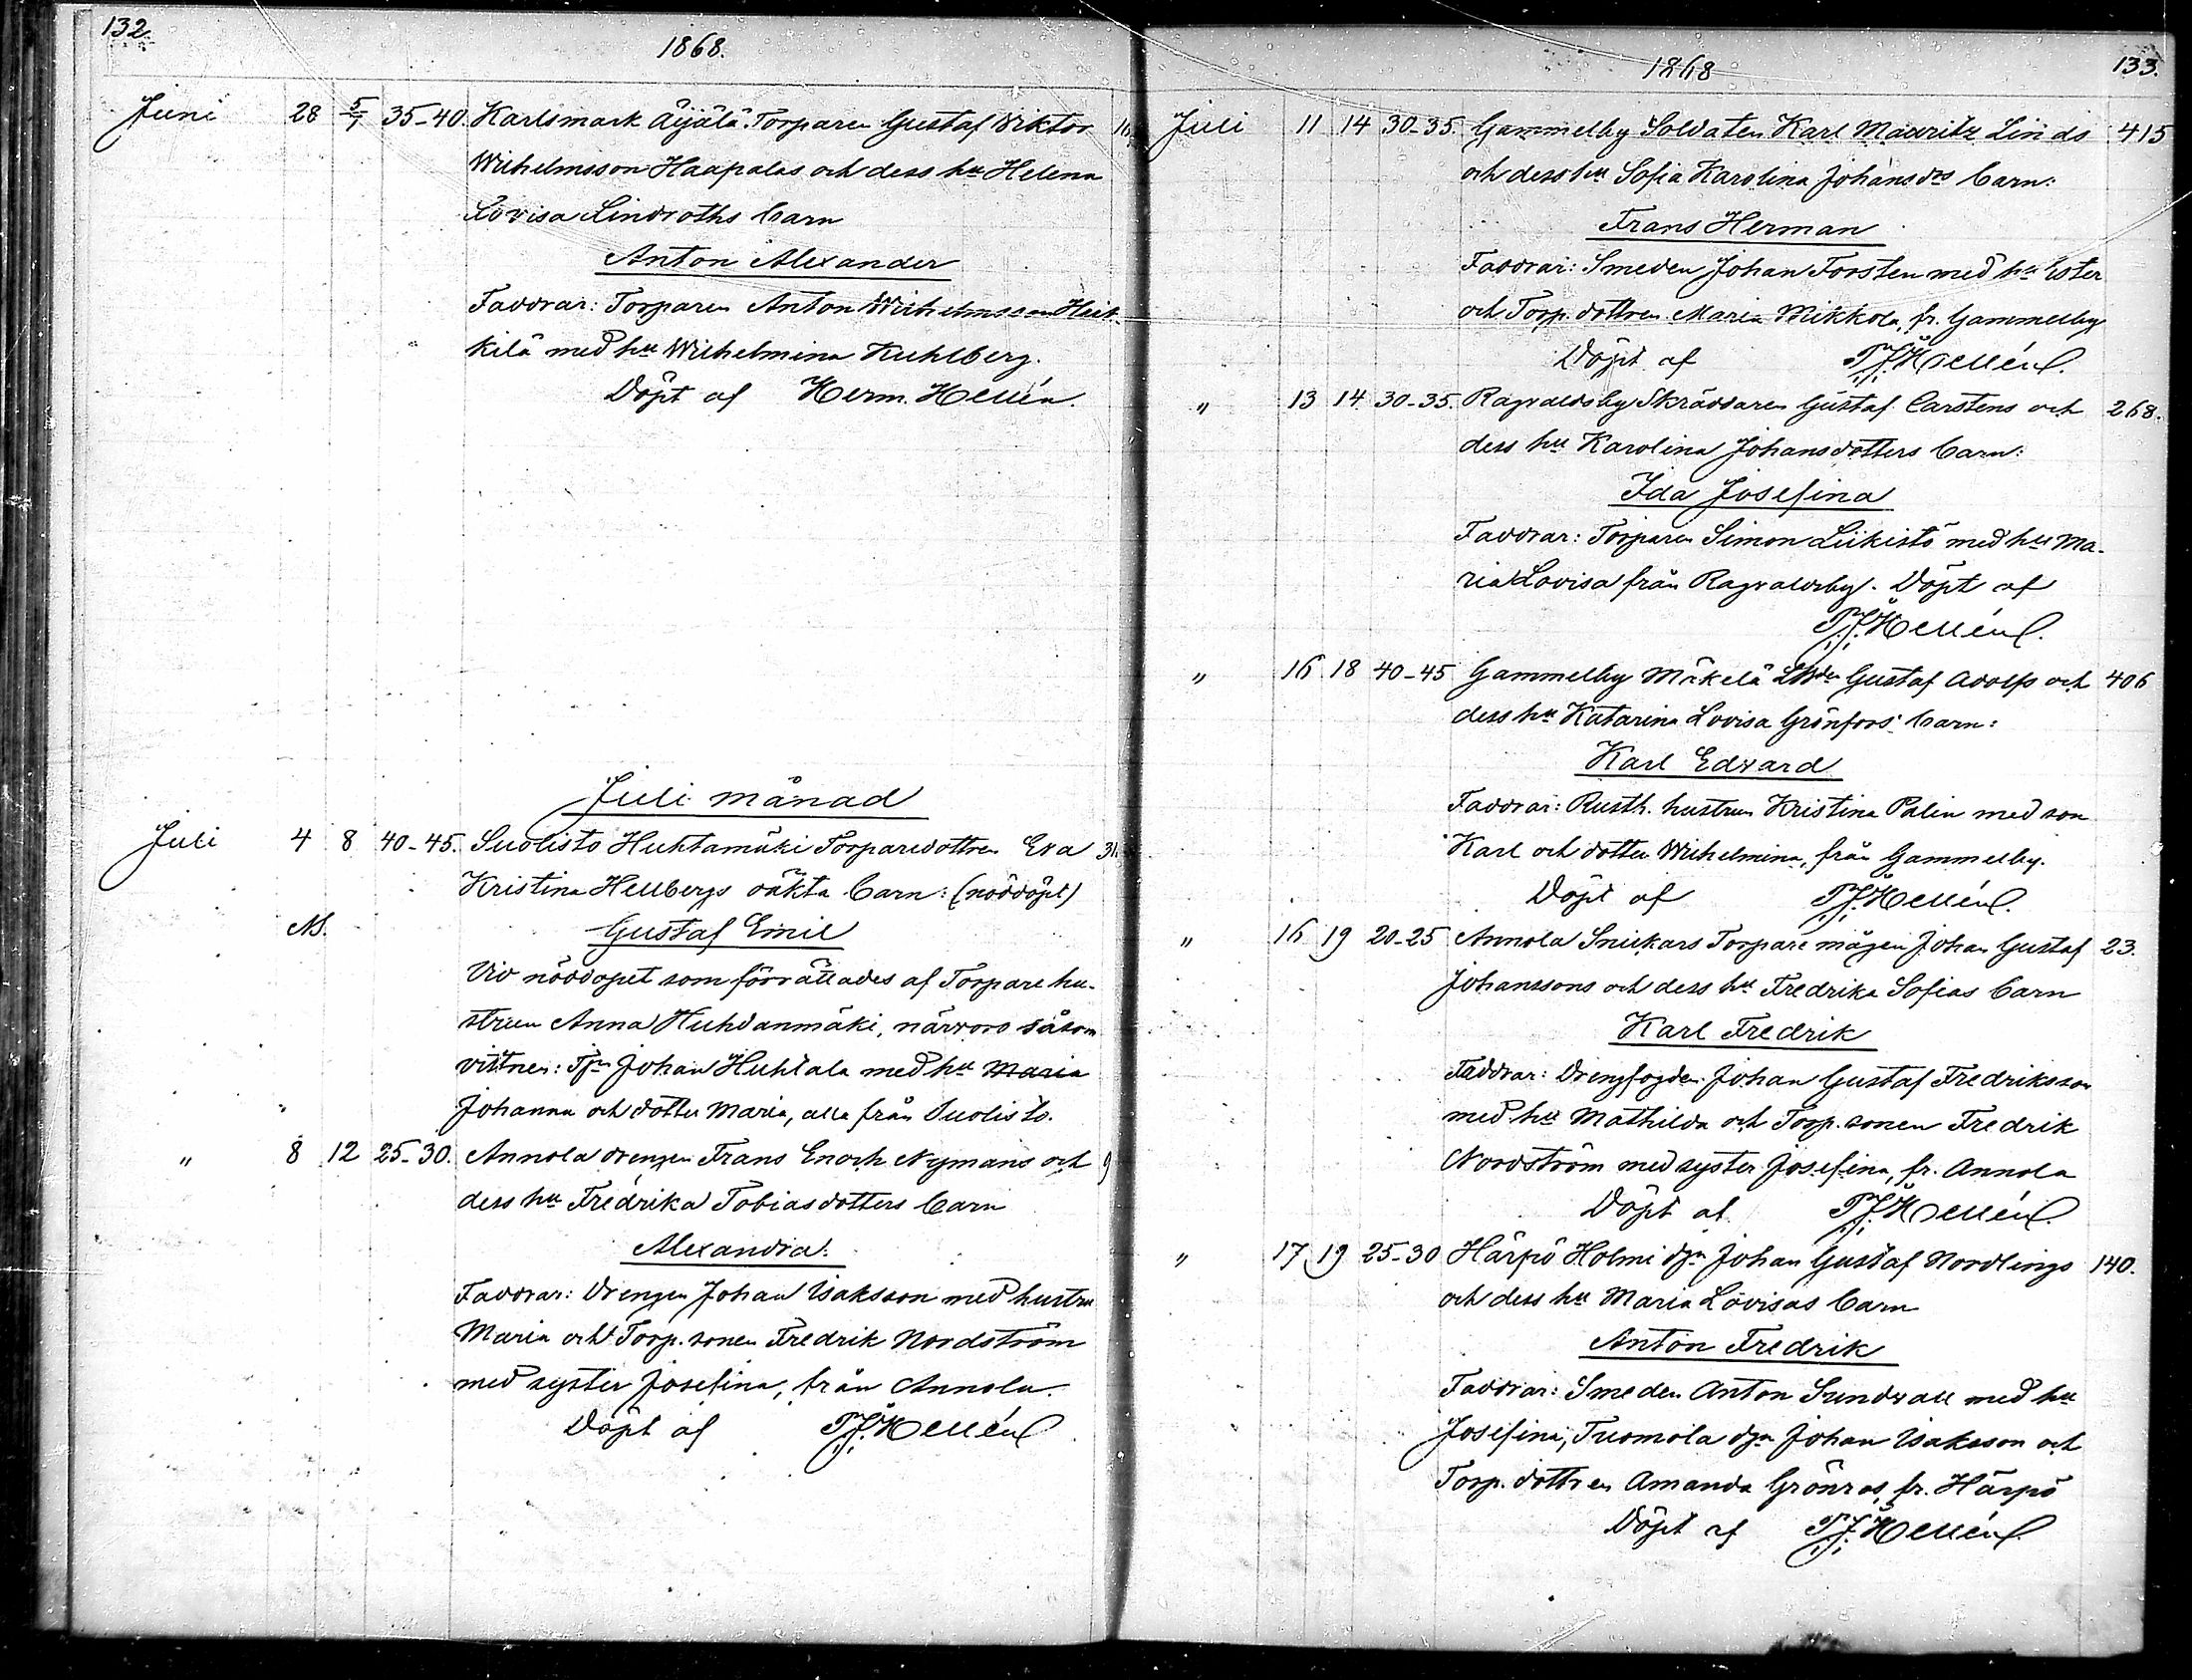 132.
1868.
Juni 28 5/7 35-40. Karlsmark Äijälä Torparen Gustaf Wiktor
Wilhelmsson Haapalas och dess hu Helena
Lovisa Lindroths barn
Anton Alexander
Faddrar: Torparen Anton Wilhelmsson Heik-
kilä med hu Wilhelmina Kuhlberg.
Döpt af Herm. Hellén.
Juli månad
Juli 4 8 40-45. Suolisto Huhtamäki Torparedottren Eva
Kristina Hellbergs oäkta barn: (nöddöpt)
Gustaf Emil
Vid nöddopet som förrättades af Torpare hu-
strun Anna Huhdanmäki, närvoro såsom
vittnen: Johan Huhtala med hu Maria
Johanna och dotter Maria, alla från Suolisto.
" 8 12 25-30. Annola drengen Frans Enoch Nymans och 9
dess hu Fredrika Tobiasdotters barn
Alexandra.
Faddrar: Drengen Johan Isaksson med hustru
Maria och Torp. sonen Fredrik Nordström
med syster Josefina, från Annola.
Döpt af Hellén
133.
1868
Juli 11 14 30-35. Gammelby Soldaten Karl Mauritz Linds 415
och dess hu Sofia Karolina Johansdrs barn:
Frans Herman
Faddrar: Smeden Johan Forsten med hu Ester
och Torp. dottren Maria Mikkola, fr. Gammelby
Döpt af Hellén.
" 13 14 30-35. Ragvaldsby Skräddaren Gustaf Carstens och 268.
dess hu Karolina Johansdotters barn:
Ida Josefina
Faddrar: Torparen Simon Liikistö med hu Ma-
ria Lovisa från Ragvaldsby. Döpt af
Hellén.
" 16 18 40-45 Gammelby Mäkelä Gustaf Adolfs och 406
dess hu Katarina Lovisa Grönfors' barn:
Karl Edvard
Faddrar: Rusth. hustrun Kristina Palin med son
Karl och dotter Wilhelmina, från Gammelby.
Döpt af Hellén.
" 16 19 20-25 Annola Snickars Torpare mågen Johan Gustaf 23.
Johanssons och dess hu Fredrika Sofias barn
Karl Fredrik
Faddrar: Drengfogden Johan Gustaf Fredriksson
med hu Mathilda och Torp. sonen Fredrik
Nordström med syster Josefina, fr. Annola
Döpt af Hellén.
" 17 19 25-30 Härpö Holmi dgn Johan Gustaf Nordlings 140.
och dess hu Maria Lovisas barn
Anton Fredrik
Faddrar: Smeden Anton Sundvall med hu
Josefina, Tuomola dgn Johan Isaksson och
Torp. dottren Amanda Grönros, fr. Härpö
Döpt af Hellén.